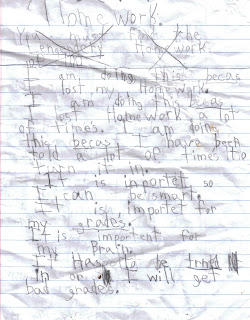 Home work.
You must Find the
Home work.
I am doing this becas
I lost my Homework.
I am doing this becas
I lost Homework a lot
of times. I am doing
this becas I have been
told a lot of times to
turn it in.
It is inportet so
I can be smart.
It is importet for
my grades.
It is importent for
my Brain
It Has to be
in or it will get
bad grades.